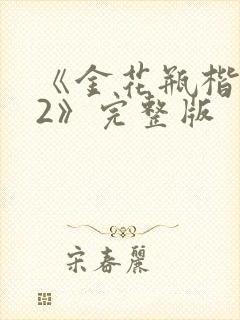 《金花瓶楷
2》完整版
宋春丽